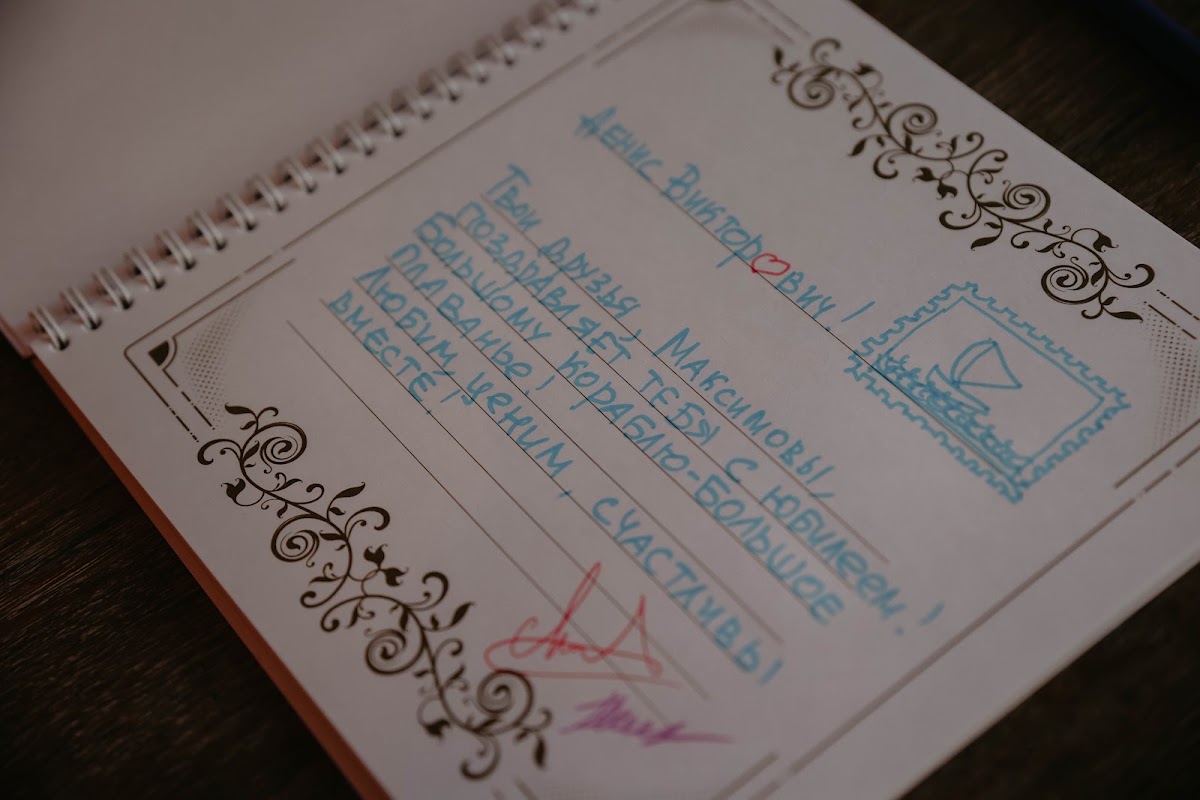 Денис Викторович!
Твои друзья, Максимовы,
поздравляет тебя с юбилеем!
Большому кораблю - большое
плаванье!
Любим, ценим, счастливы
вместе.